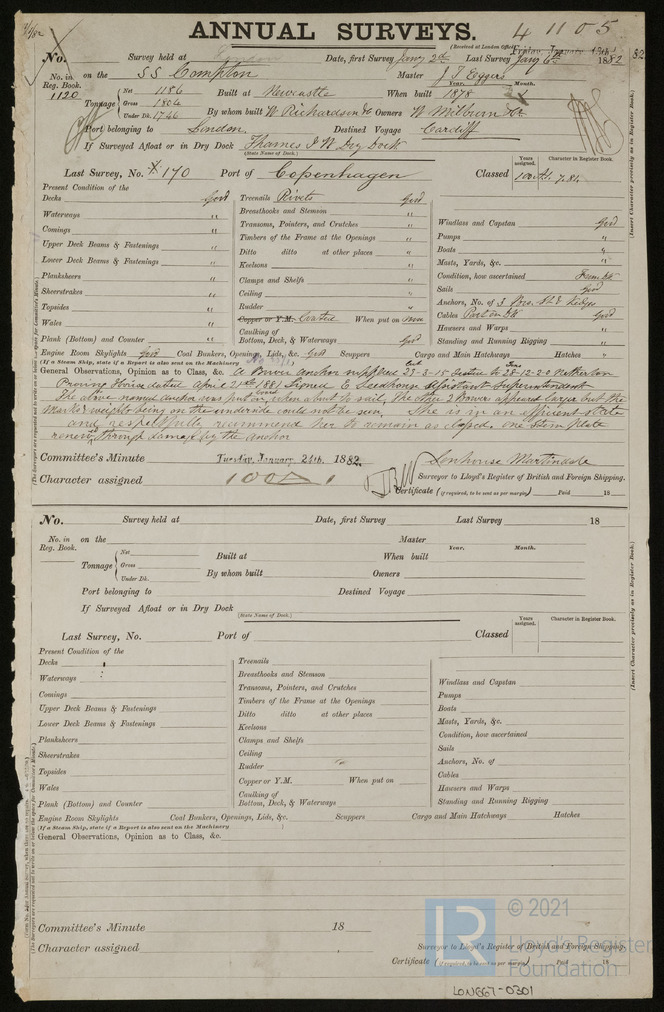 ANNUAL SURVEYS. 41105
(Received at London Office Friday, January 13th 1882
No. Survey held at Date, first Survey Jany 2nd Last Survey Jany 6th 1882
No. in on the SS Compton Master
Reg. Book. Year. Month.
1120 Net 1186 Built at Newcastle When built 1878
Tonnage Gross 1804
Under Dk. 1746 By whom built W Richardson & Co Owners W Milburn
Port belonging to London Destined Voyage Cardiff
If Surveyed Afloat or in Dry Dock Thames I W Dry Dock
(State Name of Dock.)
Years assigned. Character in Register Book.
Last Survey, No. 170 Port of Copenhagen Classed 100 A1 7.81
Present Condition of the
Decks Good
Waterways "
Comings "
Upper Deck Beams & Fastenings "
Lower Deck Beams & Fastenings "
Planksheers "
Sheerstrakes "
Topsides "
Wales "
Plank (Bottom) and Counter "
Treenails Rivets Good
Breasthooks and Stemson "
Transoms, Pointers, and Crutches "
Timbers of the Frame at the Openings "
Ditto ditto at other places "
Keelsons "
Clamps and Shelfs "
Ceiling "
Rudder "
Copper or Y.M. Coated When put on Now
Caulking of
Bottom, Deck, & Waterways Good
Windlass and Capstan Good
Pumps "
Boats "
Masts, Yards, &c. "
Condition, how ascertained From Dk
Sails Good
Anchors, No. of 3 Bow. St & Kedge
Cables Part on Dk Good
Hawsers and Warps "
Standing and Running Rigging "
Engine Room Skylights Good Coal Bunkers, Openings, Lids, &c. Good Scuppers Cargo and Main Hatchways Good Hatches "
(If a Steam Ship, state if a Report is also sent on the Machinery
General Observations, Opinion as to Class, &c. A Bower Anchor supplied 23-3-15 tested to 23-12-2-0 Netherton
Proving House dated April 21st 1881 Signed E Seedhouse Assistant Superintendent
The above named Anchor was put on board when about to sail, the other 2 Bowers appeared large but the
marks & weights being on the underside could not be seen, She is in an efficient state
and respectfully recommend her to remain as classed. one Stem plate
renewed through damage by the anchor
Committee's Minute Tuesday, January 24th, 1882.
Character assigned 100 A 1
Senhouse Martindale
Surveyor to Lloyd's Register of British and Foreign Shipping.
Certificate (if required, to be sent as per margin) Paid 18
(Insert Character precisely as in Register Book.)
No. Survey held at Date, first Survey Last Survey 18
No. in on the Master
Reg. Book. Year. Month.
Net Built at When built
Tonnage Gross
Under Dk. By whom built Owners
Port belonging to Destined Voyage
If Surveyed Afloat or in Dry Dock
(State Name of Dock.)
Years assigned. Character in Register Book.
Last Survey, No. Port of Classed
Present Condition of the
Decks
Waterways
Comings
Upper Deck Beams & Fastenings
Lower Deck Beams & Fastenings
Planksheers
Sheerstrakes
Topsides
Wales
Plank (Bottom) and Counter
Treenails
Breasthooks and Stemson
Transoms, Pointers, and Crutches
Timbers of the Frame at the Openings
Ditto ditto at other places
Keelsons
Clamps and Shelfs
Ceiling
Rudder
Copper or Y.M. When put on
Caulking of
Bottom, Deck, & Waterways
Windlass and Capstan
Pumps
Boats
Masts, Yards, &c.
Condition, how ascertained
Sails
Anchors, No. of
Cables
Hawsers and Warps
Standing and Running Rigging
Engine Room Skylights Coal Bunkers, Openings, Lids, &c. Scuppers Cargo and Main Hatchways Hatches
(If a Steam Ship, state if a Report is also sent on the Machinery )
General Observations, Opinion as to Class, &c.
(Insert Character precisely as in Register Book.)
Committee's Minute 18
Character assigned
Surveyor to Lloyd's Register of British and Foreign Shipping.
Certificate (if required, to be sent as per margin) Paid 18
© 2021
LR Lloyd's Register
Foundation
LON667-0301